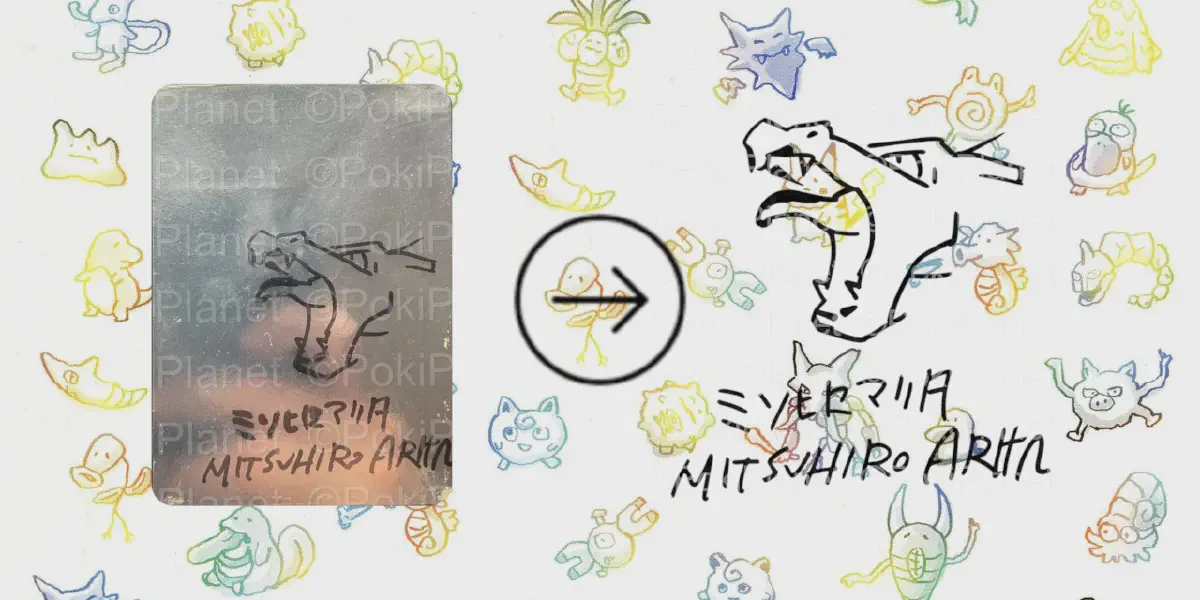 Planet ©PokiP
Planet ©PokiP
Planet ©PokiP
Planet ©PokiP
Planet ©PokiP
Planet ©PokiP
Planet ©PokiP
ミツヒロアリタ
MITSUHIRO ARITA
ミツヒロアリタ
MITSUHIRO ARITA